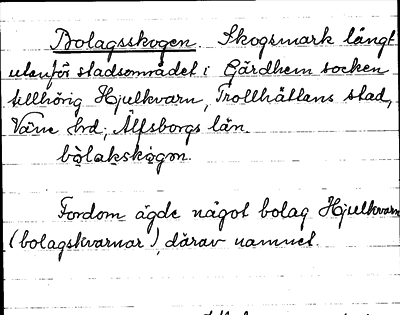 Bolagsskogen. Skogsmark långt
utanför stadsområdet i Gärdhem socken
tillhörig Hjulkvarn, Trollhättans stad,
Väne hrd, Älfsborgs län.
bòlakskògọn.
Fordom ägde något bolag Hjulkvarn
(bolagskvarnar), därav namnet.